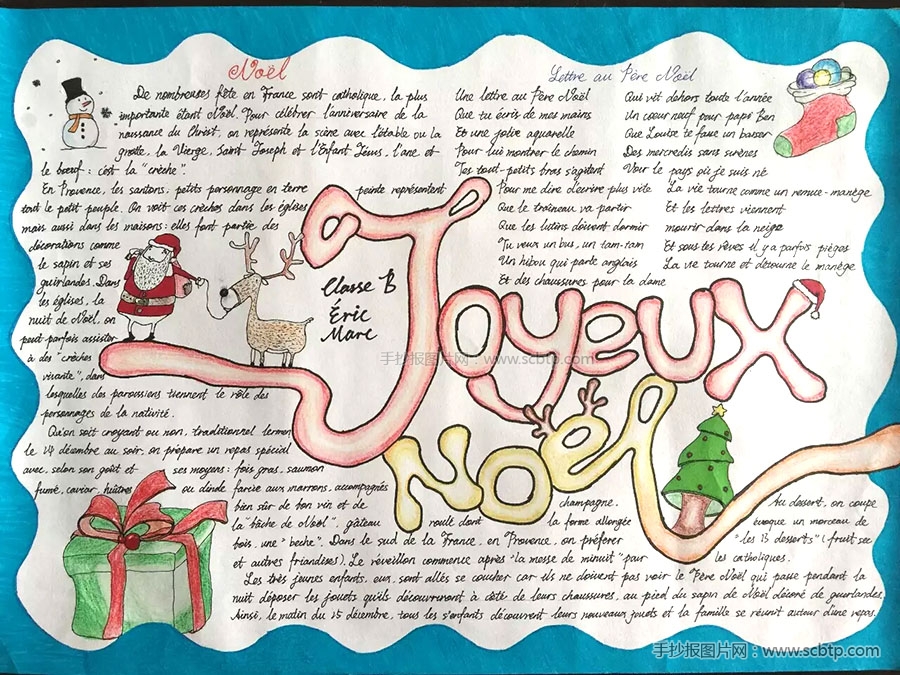 Noël
De nombreuses fête en France sont catholique, la plus
importante étant Noël. Pour célébrer l'anniversaire de la
naissance du Christ, on représente la scène avec l'étable ou la
grotte, la Vierge, Saint Joseph et l'Enfant Jésus, l'ane et
le bœuf: c'est la "crèche".
En Provence, les santons: petits personnage en terre peinte représentent
tout le petit peuple. On voit ces crèches dans les églises
mais aussi dans les maisons: elles font partie des
décorations comme
le sapin et ses
guirlandes. Dans
les églises, la
nuit de Noël, on
peut parfois assister
à des "crèches
vivante", dans
lesquelles des paroissiens tiennent le rôle des
personnages de la nativité.
Lettre au Père Noël
Une lettre au Père Noël
Que tu écris de mes mains
Et une jolie aquarelle
Pour lui montrer le chemin
Tes tout-petits bras s'agitent
Pour me dire d'écrire plus vite
Que le traîneau va partir
Que les lutins doivent dormir
Tu veux un bus, un tam-tam
Un hibou qui parle anglais
Et des chaussures pour la dame
Qui vit dehors toute l'année
Un cœur neuf pour papi Ben
Que Louise te fasse un baiser
Des mercredis sans sirènes
Voir le pays où je suis né
La vie tourne comme un remue-manège
Et les lettres viennent
mourir dans la neige
Et sous les rêves il y a parfois pièges
La vie tourne et détourne le manège
Classe B
Éric
Marc
Joyeux
Noël
Qu'on soit croyant ou non, traditionnel lement
le 24 décembre au soir, on prépare un repas spécial
avec, selon son goût et ses moyens: fois gras, saumon
fumé, caviar, huîtres ou dinde farcie aux marrons, accompagnés
bien sûr de bon vin et de champagne. Au dessert, on coupe
la "bûche de Noël", gâteau roulé dont la forme allongée évoque un morceau de
bois, une "beche". Dans le sud de la France, en Provence, on préférer "les 13 desserts" (fruit sec
et autres friandises). Le réveillon commence après "la messe de minuit" pour les catholiques.
Les très jeunes enfants, eux, sont allés se coucher car ils ne doivent pas voir le Père Noël qui passe pendant la
nuit déposer les jouets qu'ils découvriront à côté de leurs chaussures, au pied du sapin de Noël décoré de guirlandes.
Ainsi, le matin du 25 décembre, tous les enfants découvrent leurs nouveaux jouets et la famille se réunit autour d'une repas.
手抄报图片网：www.scbtp.com
手抄报图片网：www.scbtp.com